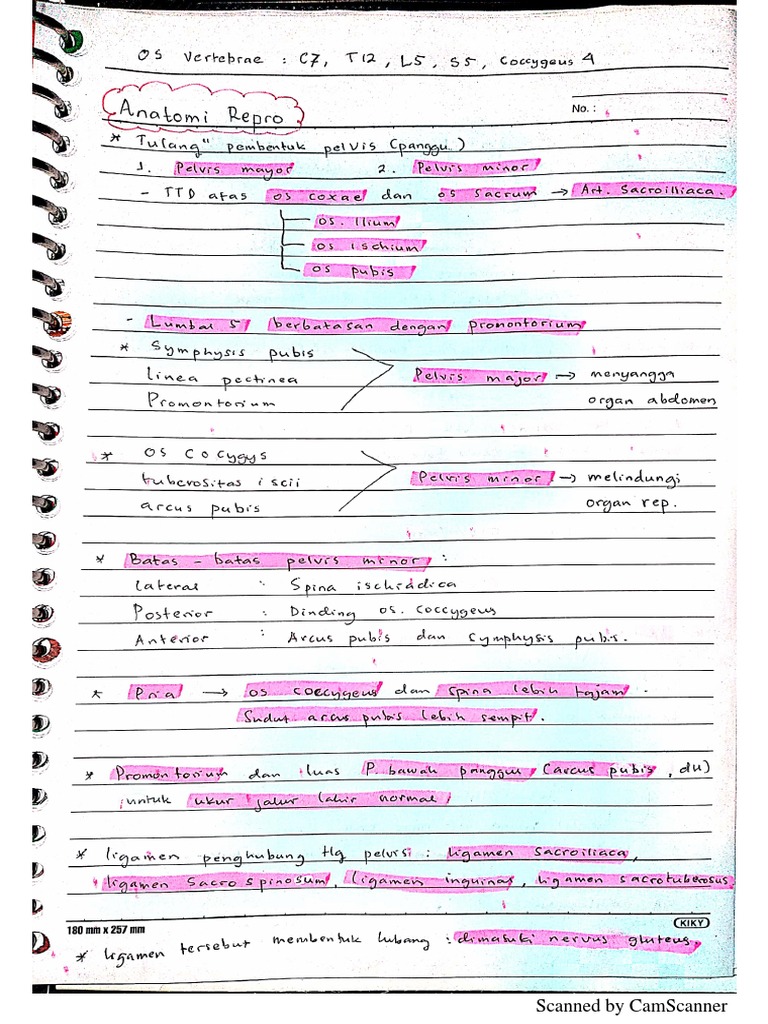 OS Vertebrae : C7, T12, L5, S5, Coccygeus 4
Anatomi Repro
No. :
* Tulang" pembentuk pelvis (panggul)
1. Pelvis mayor 2. Pelvis minor
- TTD atas os coxae dan os sacrum → Art. Sacroilliaca.
os. Ilium
os ischium
os pubis
- Lumbal 5 berbatasan dengan promontorium
* Symphysis pubis
linea pectinea Pelvis major → menyangga
Promontorium organ abdomen
* OS COCYGYS
tuberositas iscii Pelvis minor → melindungi
arcus pubis organ rep.
* Batas - batas pelvis minor :
Lateral : Spina ischiadica
Posterior : Dinding os. coccygeus
Anterior : Arcus pubis dan Symphysis pubis.
* Pria → os coccygeus dan spina lebih tajam.
Sudut arcus pubis lebih sempit.
* Promontorium dan luas P. bawah panggul (arcus pubis, dll)
untuk ukur jalur lahir normal
* ligamen penghubung tlg pelvis : ligamen sacroiliaca,
ligamen Sacro spinosum, ligamen inguinal, ligamen sacrotuberosus
180 mm x 257 mm KIKY
* ligamen tersebut membentuk lubang : dimasuki nervus gluteus.
Scanned by CamScanner